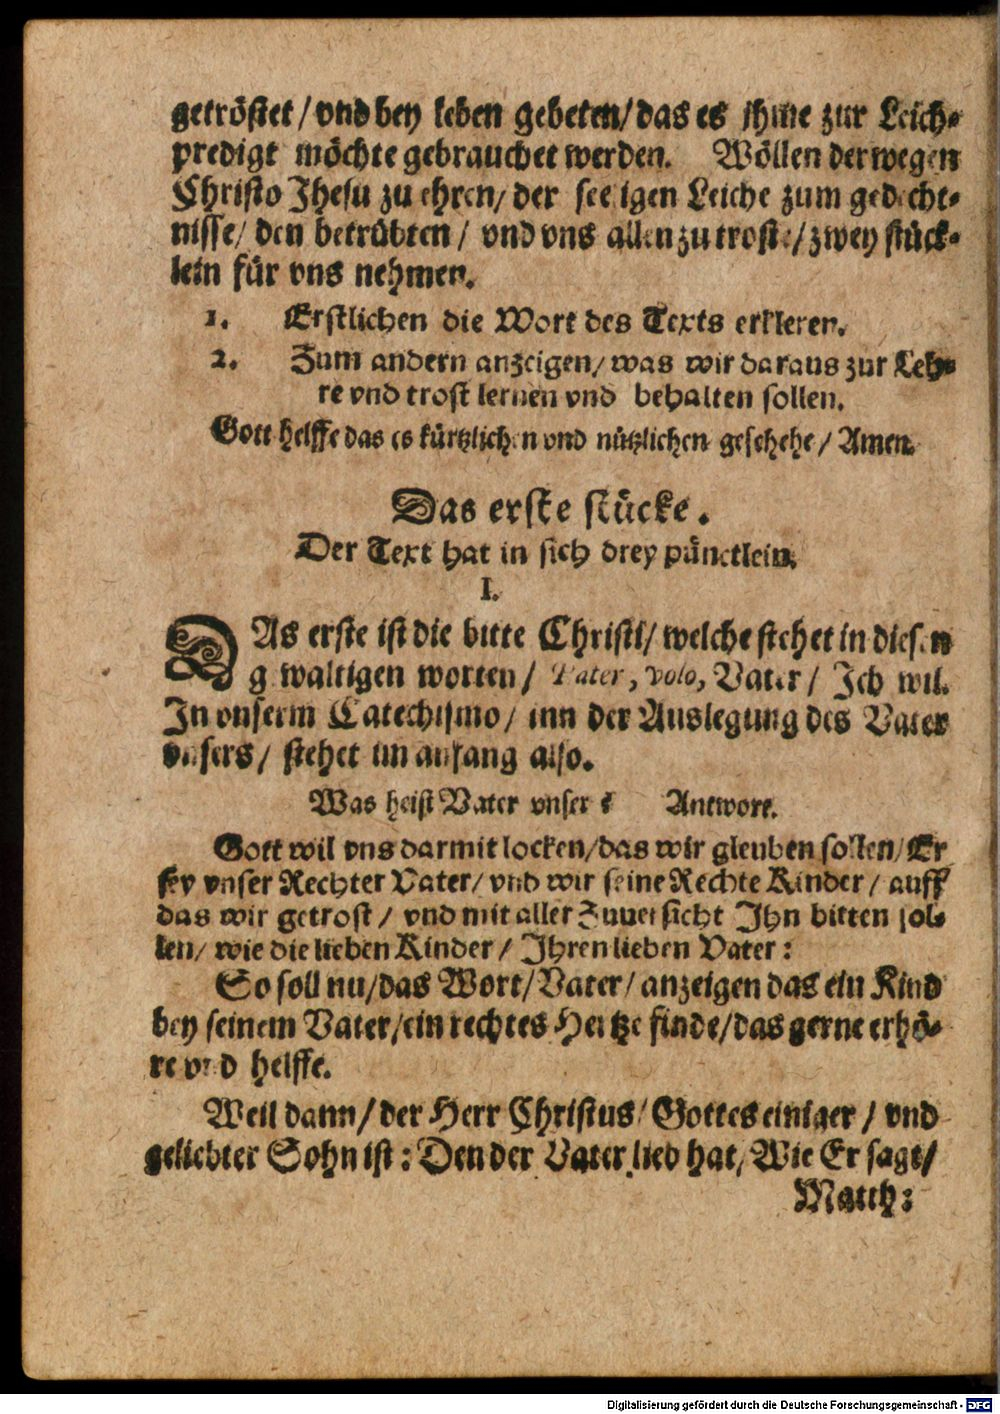 getröstet / vnd bey leben gebeten / das es jhme zur Leich-
predigt möchte gebrauchet werden. Wöllen derwegen
Christo Jhesu zu ehren / der seeligen Leiche zum gedecht-
nisse / den betrübten / vnd vns allen zu troste / zwey stück-
lein für vns nehmen.
1. Erstlichen die Wort des Texts erkleren.
2. Zum andern anzeigen / was wir daraus zur Leh-
re vnd trost lernen vnd behalten sollen.
Gott helffe das es kürtzlichen vnd nützlichen geschehe / Amen.
Das erste stücke.
Der Text hat in sich drey pünctlein.
I.
DAs erste ist die bitte Christi / welche stehet in diesen
gewaltigen worten / Pater, volo, Vater / Jch wil.
Jn vnserm Catechismo / inn der Auslegung des Vater
vnsers / stehet im anfang also.
Was heist Vater vnser? Antwort.
Gott wil vns darmit locken / das wir gleuben sollen / Er
sey vnser Rechter Vater / vnd wir seine Rechte Kinder / auff
das wir getrost / vnd mit aller Zuuersicht Jhn bitten sol-
len / wie die lieben Kinder / Jhren lieben Vater:
So soll nu / das Wort / Vater / anzeigen das ein Kind
bey seinem Vater / ein rechtes Hertze finde / das gerne erhö-
re vnd helffe.
Weil dann / der Herr Christus / Gottes einiger / vnd
geliebter Sohn ist: Den der Vater lieb hat, Wie Er sagt /
Matth:
Digitalisierung gefördert durch die Deutsche Forschungsgemeinschaft - DFG